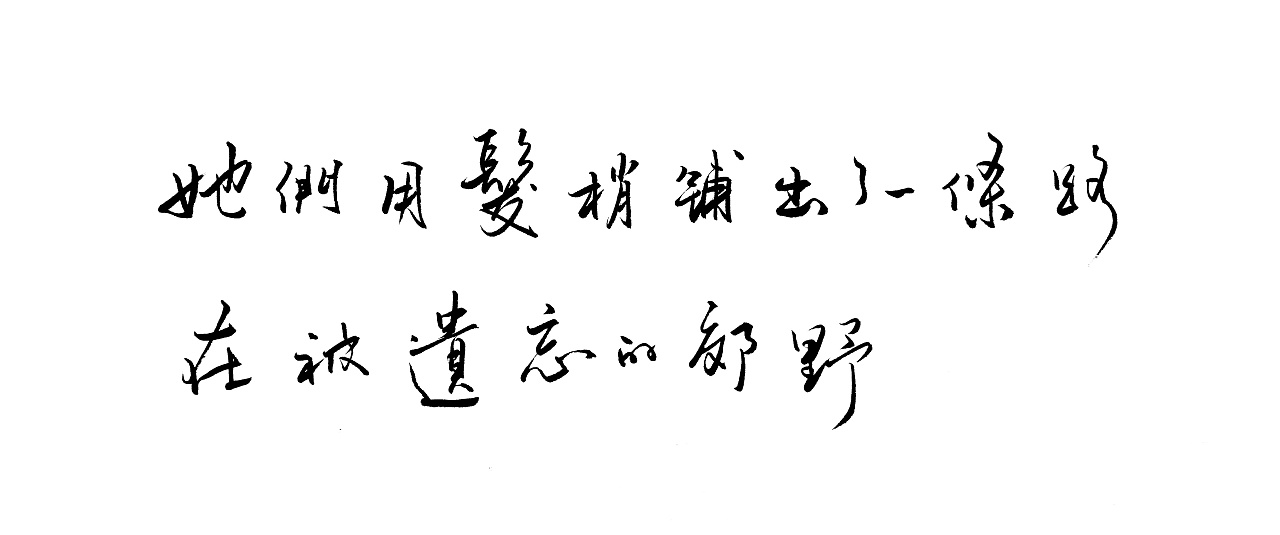 她們用髮梢鋪出了一條路
在被遺忘的郊野